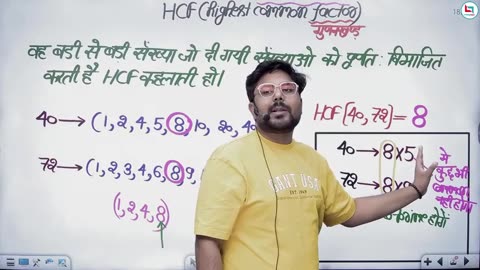 HCF (Highest common factor)
गुणनखण्ड
वह बडी से बडी संख्या जो दी गयी संख्याओ को पूर्णत: विभाजित
करती है HCF कहलाती हो।
40 → (1,2,4,5,8,10, 20, 40
HCF(40, 72) = 8
40 → 8×5
72 → (1,2,3,4,6,8,9,
72 → 8×9
ये
कुछ भी
common
नही होगा
(1,2,4,8)